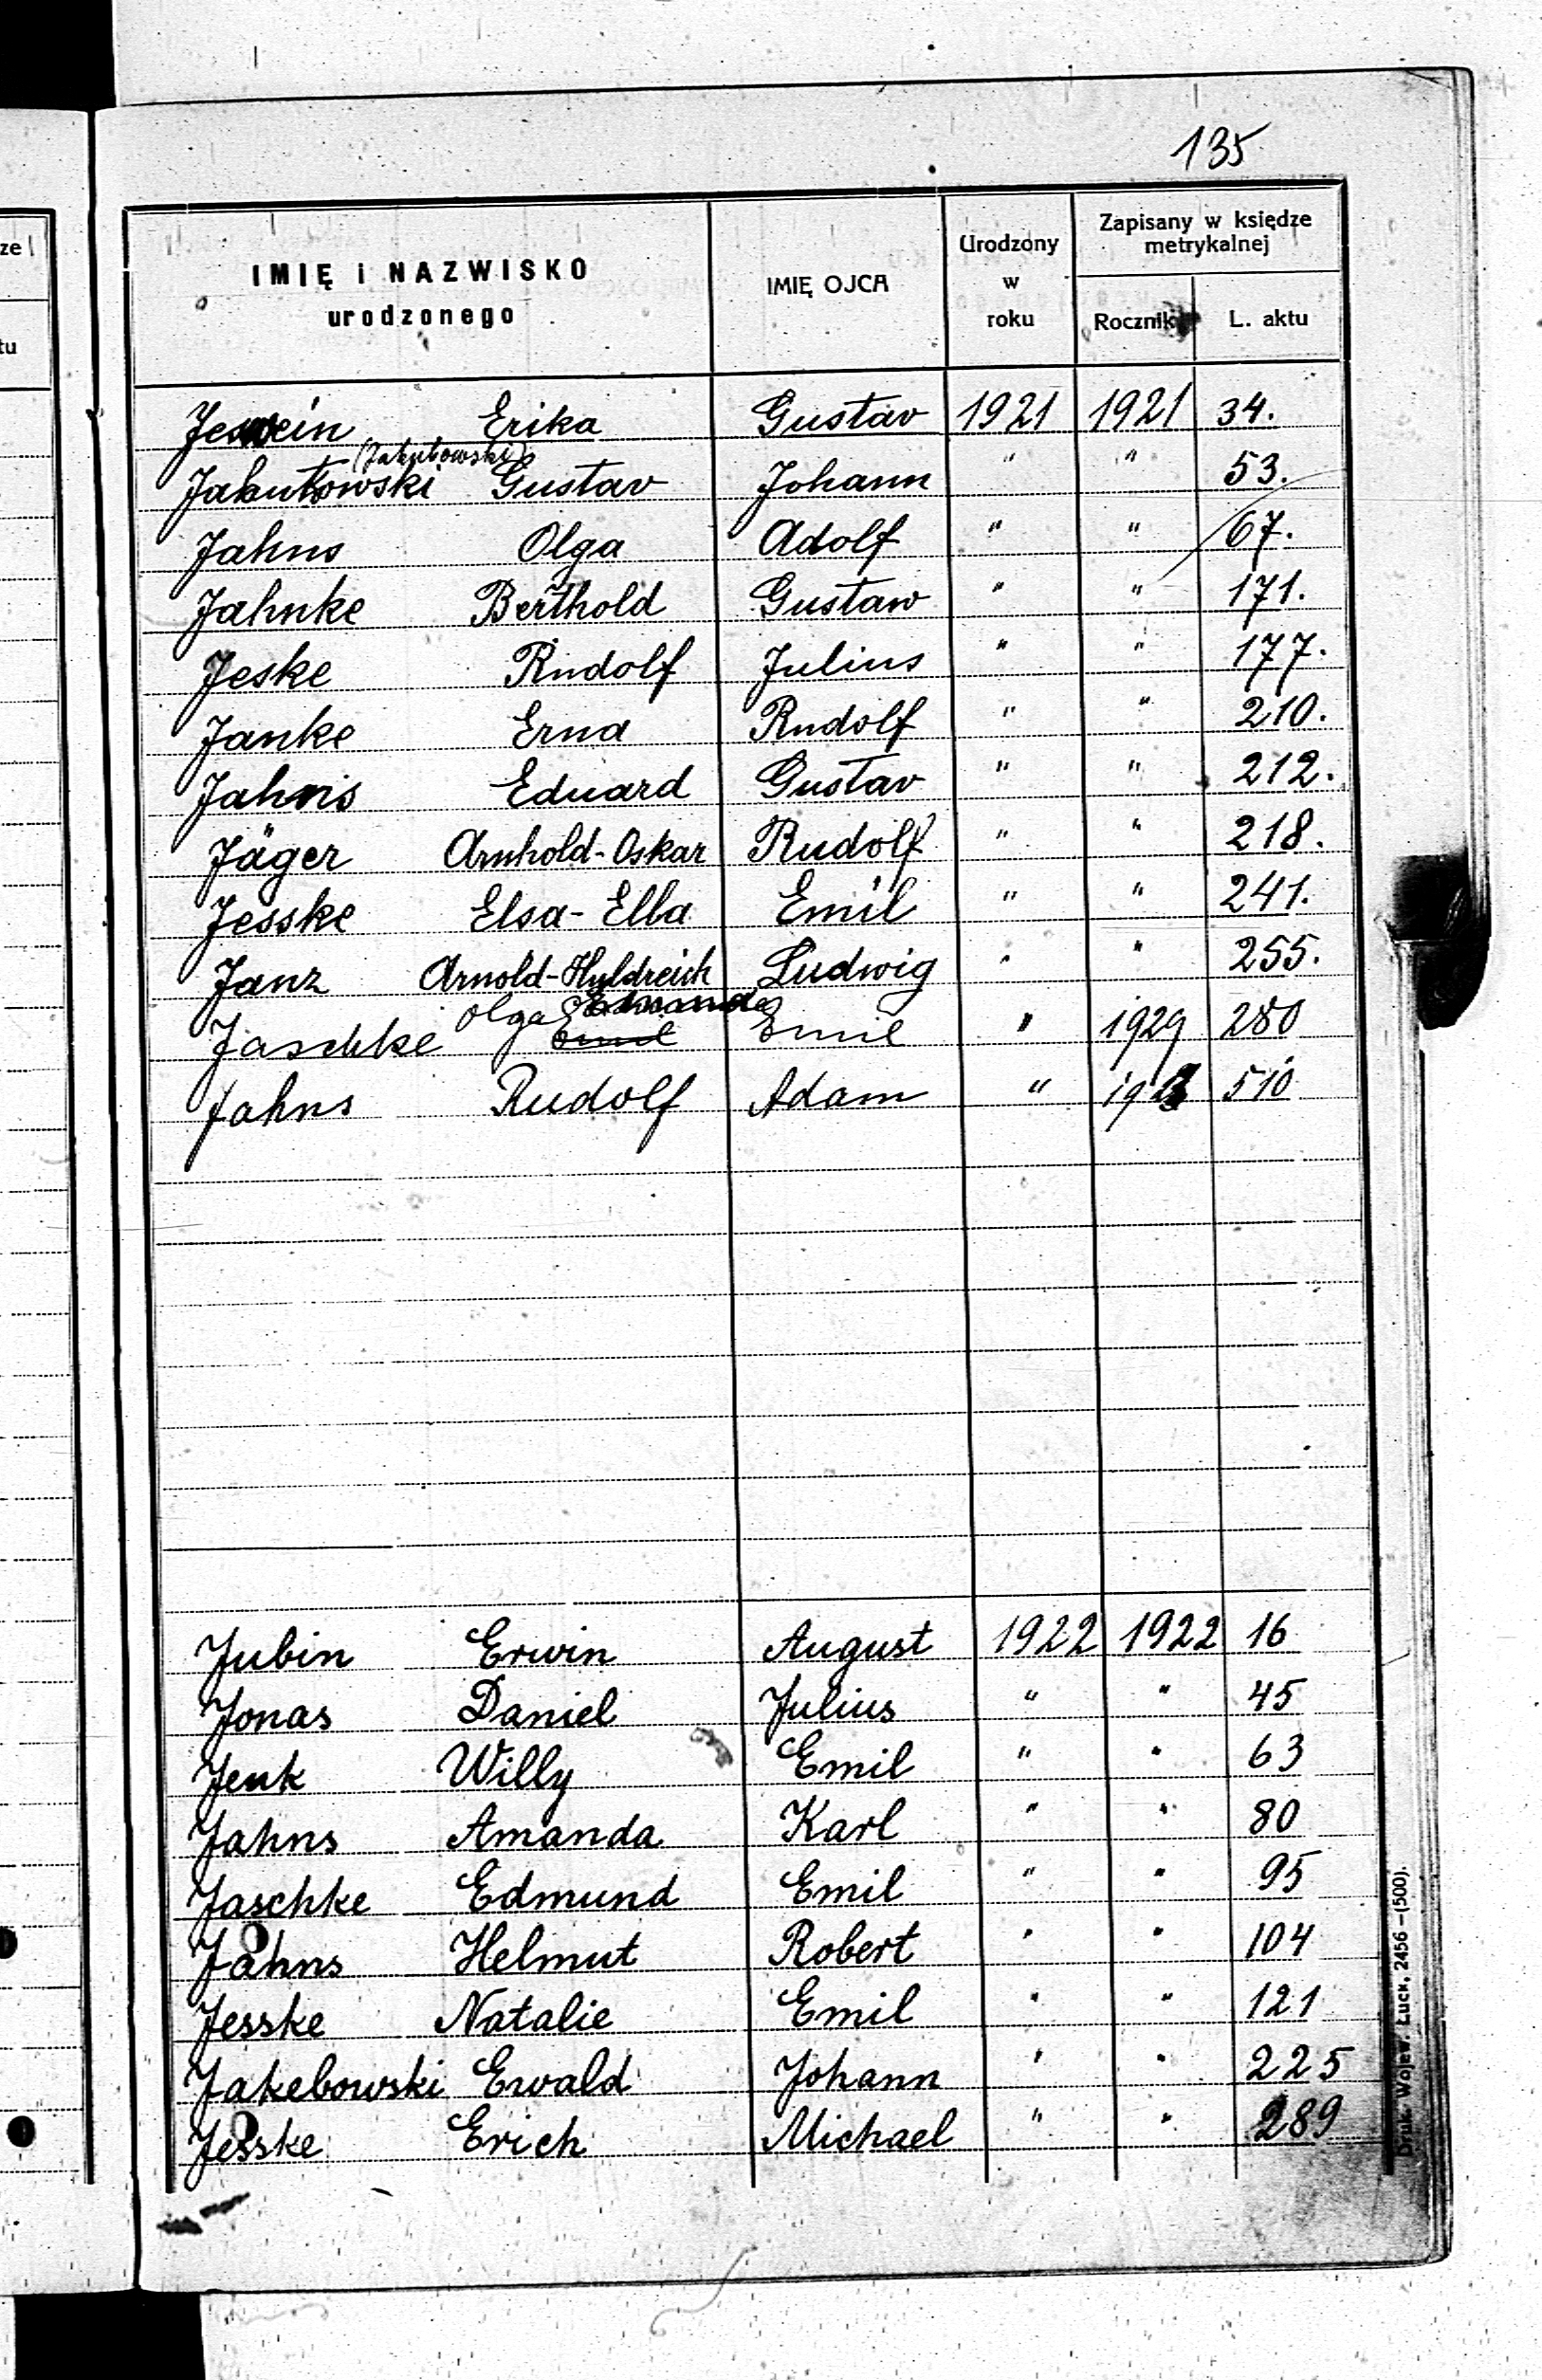 135
IMIĘ i NAZWISKO urodzonego IMIĘ OJCA Urodzony w roku Zapisany w księdze metrykalnej
Rocznik L. aktu
Jeswein Erika Gustav 1921 1921 34.
(Jakubowski)
Jakutowski Gustav Johann " " 53.
Jahns Olga Adolf " " 67.
Jahnke Berthold Gustaw " " 171.
Jeske Rudolf Julius " " 177.
Janke Erna Rudolf " " 210.
Jahns Eduard Gustav " " 212.
Jäger Arnhold-Oskar Rudolf " " 218.
Jesske Elsa-Ella Emil " " 241.
Janz Arnold-Huldreich Ludwig " " 255.
Jaschke Olga Emil " 1929 280
Jahns Rudolf Adam " 510
Jubin Erwin August 1922 1922 16
Jonas Daniel Julius " " 45
Jenk Willy Emil " " 63
Jahns Amanda Karl " " 80
Jaschke Edmund Emil " " 95
Jahns Helmut Robert " " 104
Jesske Natalie Emil " " 121
Jakebowski Ewald Johann " " 225
Jesske Erich Michael " " 289
Druk. Wojew. Łuck, 2456 – (500).
ze
tu